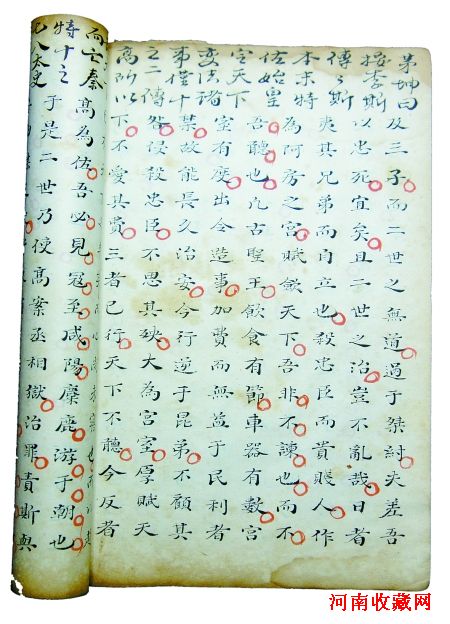 茅坤曰
按李斯
傳傳斯
本末特
佐始皇
定天下
变法诸
事僅十
之二傳
高所以
而亡秦
特十之
八太史
及三子而二世之無道過于桀紂夫差吾
以忠死宜矣且二世之治豈不亂哉日者
夷其兄弟而自立也殺忠臣而貴賤人作
為阿房之宮賦斂天下吾非不諫也而不
吾聽也凡古聖王飲食有節車器有數宮
室有度出令造事加費而無益于民利者
禁故能長久治安今行逆于昆弟不顧其
咎侵殺忠臣不思其殃大為宮室厚賦天
下不愛其費三者已行天下不聽今反者
高為佐吾必見寇至咸陽麋鹿游于朝也
于是二世乃使高案丞相獄治罪責斯與
河南收藏网